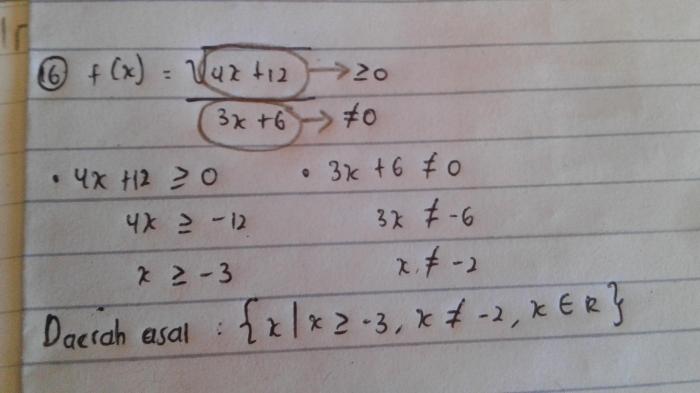 16 f(x) = √4x + 12 → ≥ 0
3x + 6 → ≠ 0
• 4x + 12 ≥ 0 • 3x + 6 ≠ 0
4x ≥ -12 3x ≠ -6
x ≥ -3 x ≠ -2
Daerah asal : {x | x ≥ -3, x ≠ -2, x ∈ R}